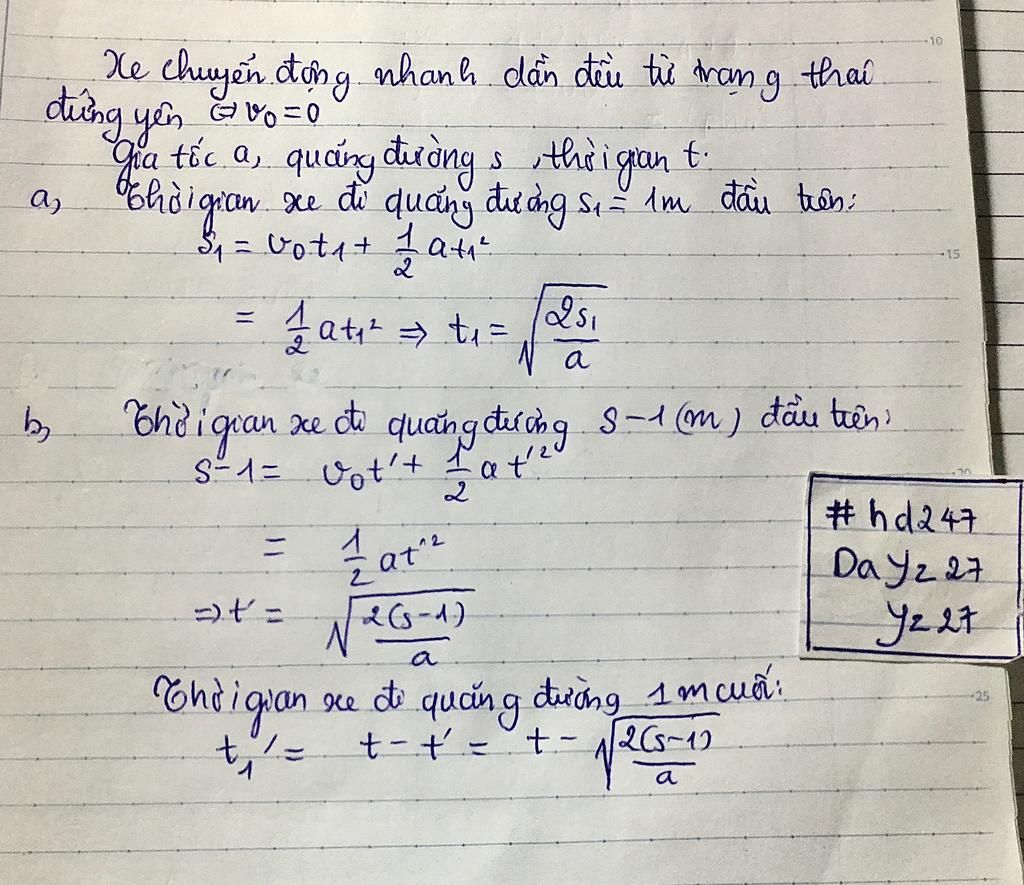 Xe chuyển động nhanh dần đều từ trạng thái
đứng yên ⇔ v₀ = 0
Gia tốc a, quãng đường s, thời gian t.
a, Thời gian xe đi quãng đường s₁ = 1m đầu tiên:
s₁ = v₀t₁ + 1/2 at₁²
= 1/2 at₁² ⇒ t₁ = √(2s₁/a)
b, Thời gian xe đi quãng đường s-1 (m) đầu tiên:
s-1 = v₀t' + 1/2 at'²
= 1/2 at'²
⇒ t' = √(2(s-1)/a)
Thời gian xe đi quãng đường 1m cuối:
t₁' = t - t' = t - √(2(s-1)/a)
#hd247
Da yz 27
yz 27
10
15
20
25